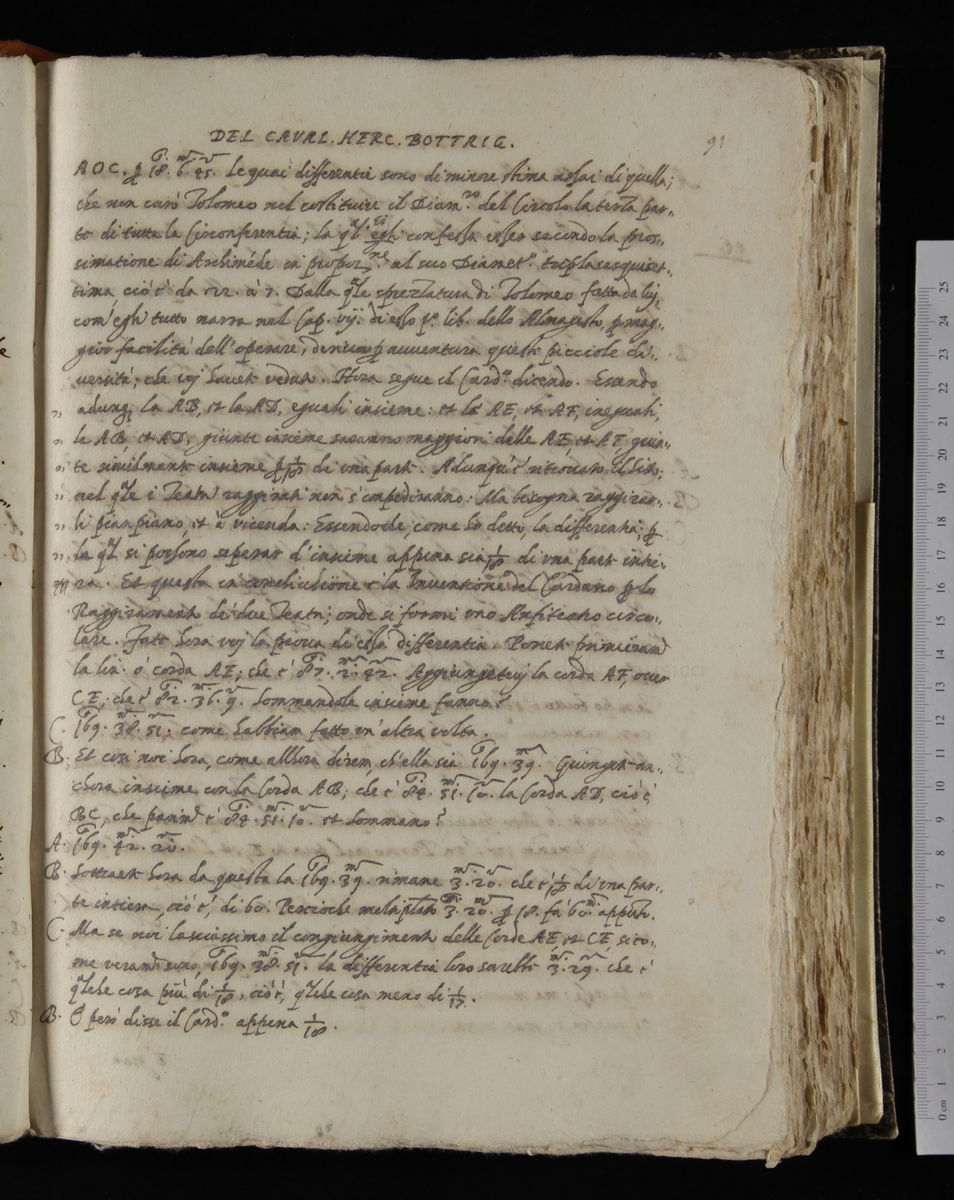 DEL CAVAL. HERC. BOTTRIG.
91
AOC. ꝑ 18. 6. 45. Le quai differentie sono di minore stima assai di quella;
che non curò Tolomeo nel costituire il Diam.ro del Circolo la terza par-
te di tutta la Circonferentia; la q.al egli confessa esser secondo la pros-
simatione di Archiméde in propor.ne al suo Diamet.o triplasesquiset-
tima, ciò è da 22. à 7. Dalla q.ale sprezzatura di Tolomeo fatta da lui,
com'egli tutto narra nel Cap. vij. di esso p.o lib. dello Almagesto, ꝑ mag-
gior facilità dell'operare, ꝑ avventura queste picciole di-
versità, che voj havete vedute. Hora segue il Card.o dicendo. Essendo
" adunq. la AB, et la AD, eguali insieme: et le AE, et AF, ineguali,
" le AB et AD, giunte insieme saranno maggiori delle AE, et AF giun-
" te similmente insieme ꝑ 1/18 di una parte. Adunque è ritrovato il Sito
" nel q.ale i Teatri raggirati non s'impediranno: Ma bisogna raggirar-
" li pian piano, et à vicenda: Essendoche, come ho detto, la differentia; ꝑ
" la q.al si possono separar d'insieme appena sia 1/18 di una parte inte-
ra. Et questa in conclusione è la Inventione del Cardano ꝑ lo
Raggiramento de' due Teatri; onde si formi uno Anfiteatro circo-
lare. Fate hora voj la prova di essa differentia. Ponete primieram.
la lin. ò corda AE; che è 87. 2. 42. Aggiungetevj la corda AF, over
CE; che è 82. 36. 9. Sommandole insieme fanno?
C. 169. 38. 51; come habbiam fatto un'altra volta.
B. Et così noi hora, come allhora direm ch'ella sia 169. 39. Giungete an-
chora insieme con la Corda AB; che è 84. 51. 10. la Corda AD, ciò è
BC, che è 84. 51. 10. et sommano?
A. 169. 42. 20.
B. Sottraete hora da questa la 169. 39. rimane 3. 20. che è 1/18 di una par-
te intiera, ciò è, di 60. Percioche 3. 20. ꝑ 18. fà 60 apputo.
C. Ma se noi lasciassimo il congiungimento delle Corde AE, et CE, sico-
me sono, 169. 38. 51. la differentia loro sarebbe 3. 29. che è
q.alche cosa più di 1/18, ciò è, q.alche cosa meno di 1/17.
B. O però disse il Card.o appena 1/18.